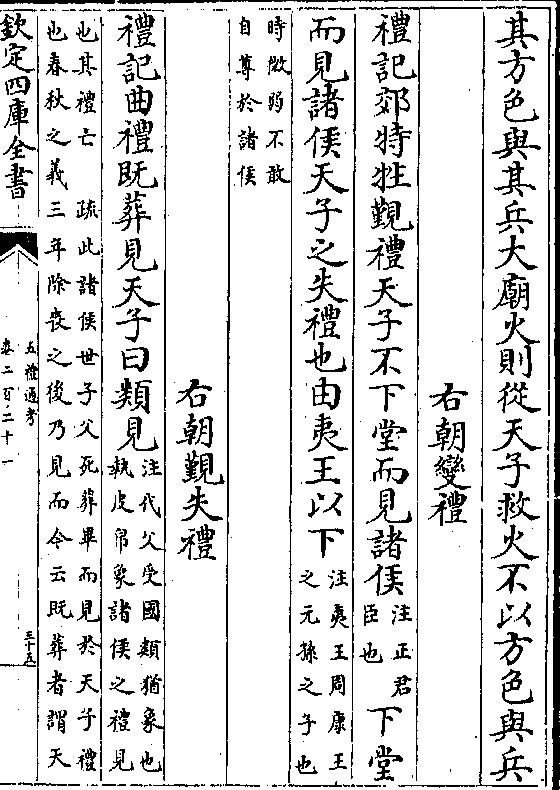 其方色與其兵大廟火則從天子救火不以方色與兵
右朝變禮
禮記郊特牲覲禮天子不下堂而見諸侯注正君臣也下堂
而見諸侯天子之失禮也由夷王以下注夷王周康王之元孫之子也
時微弱不敢自尊於諸侯
右朝覲失禮
禮記曲禮既葬見天子曰類見注代父受國類猶象也執皮帛象諸侯之禮見
也其禮亡 疏此諸侯世子父死葬畢而見於天子禮
也春秋之義三年除喪之後乃見而今云既葬者謂天
欽定四庫全書
五禮通考
卷二百二十一
三十五